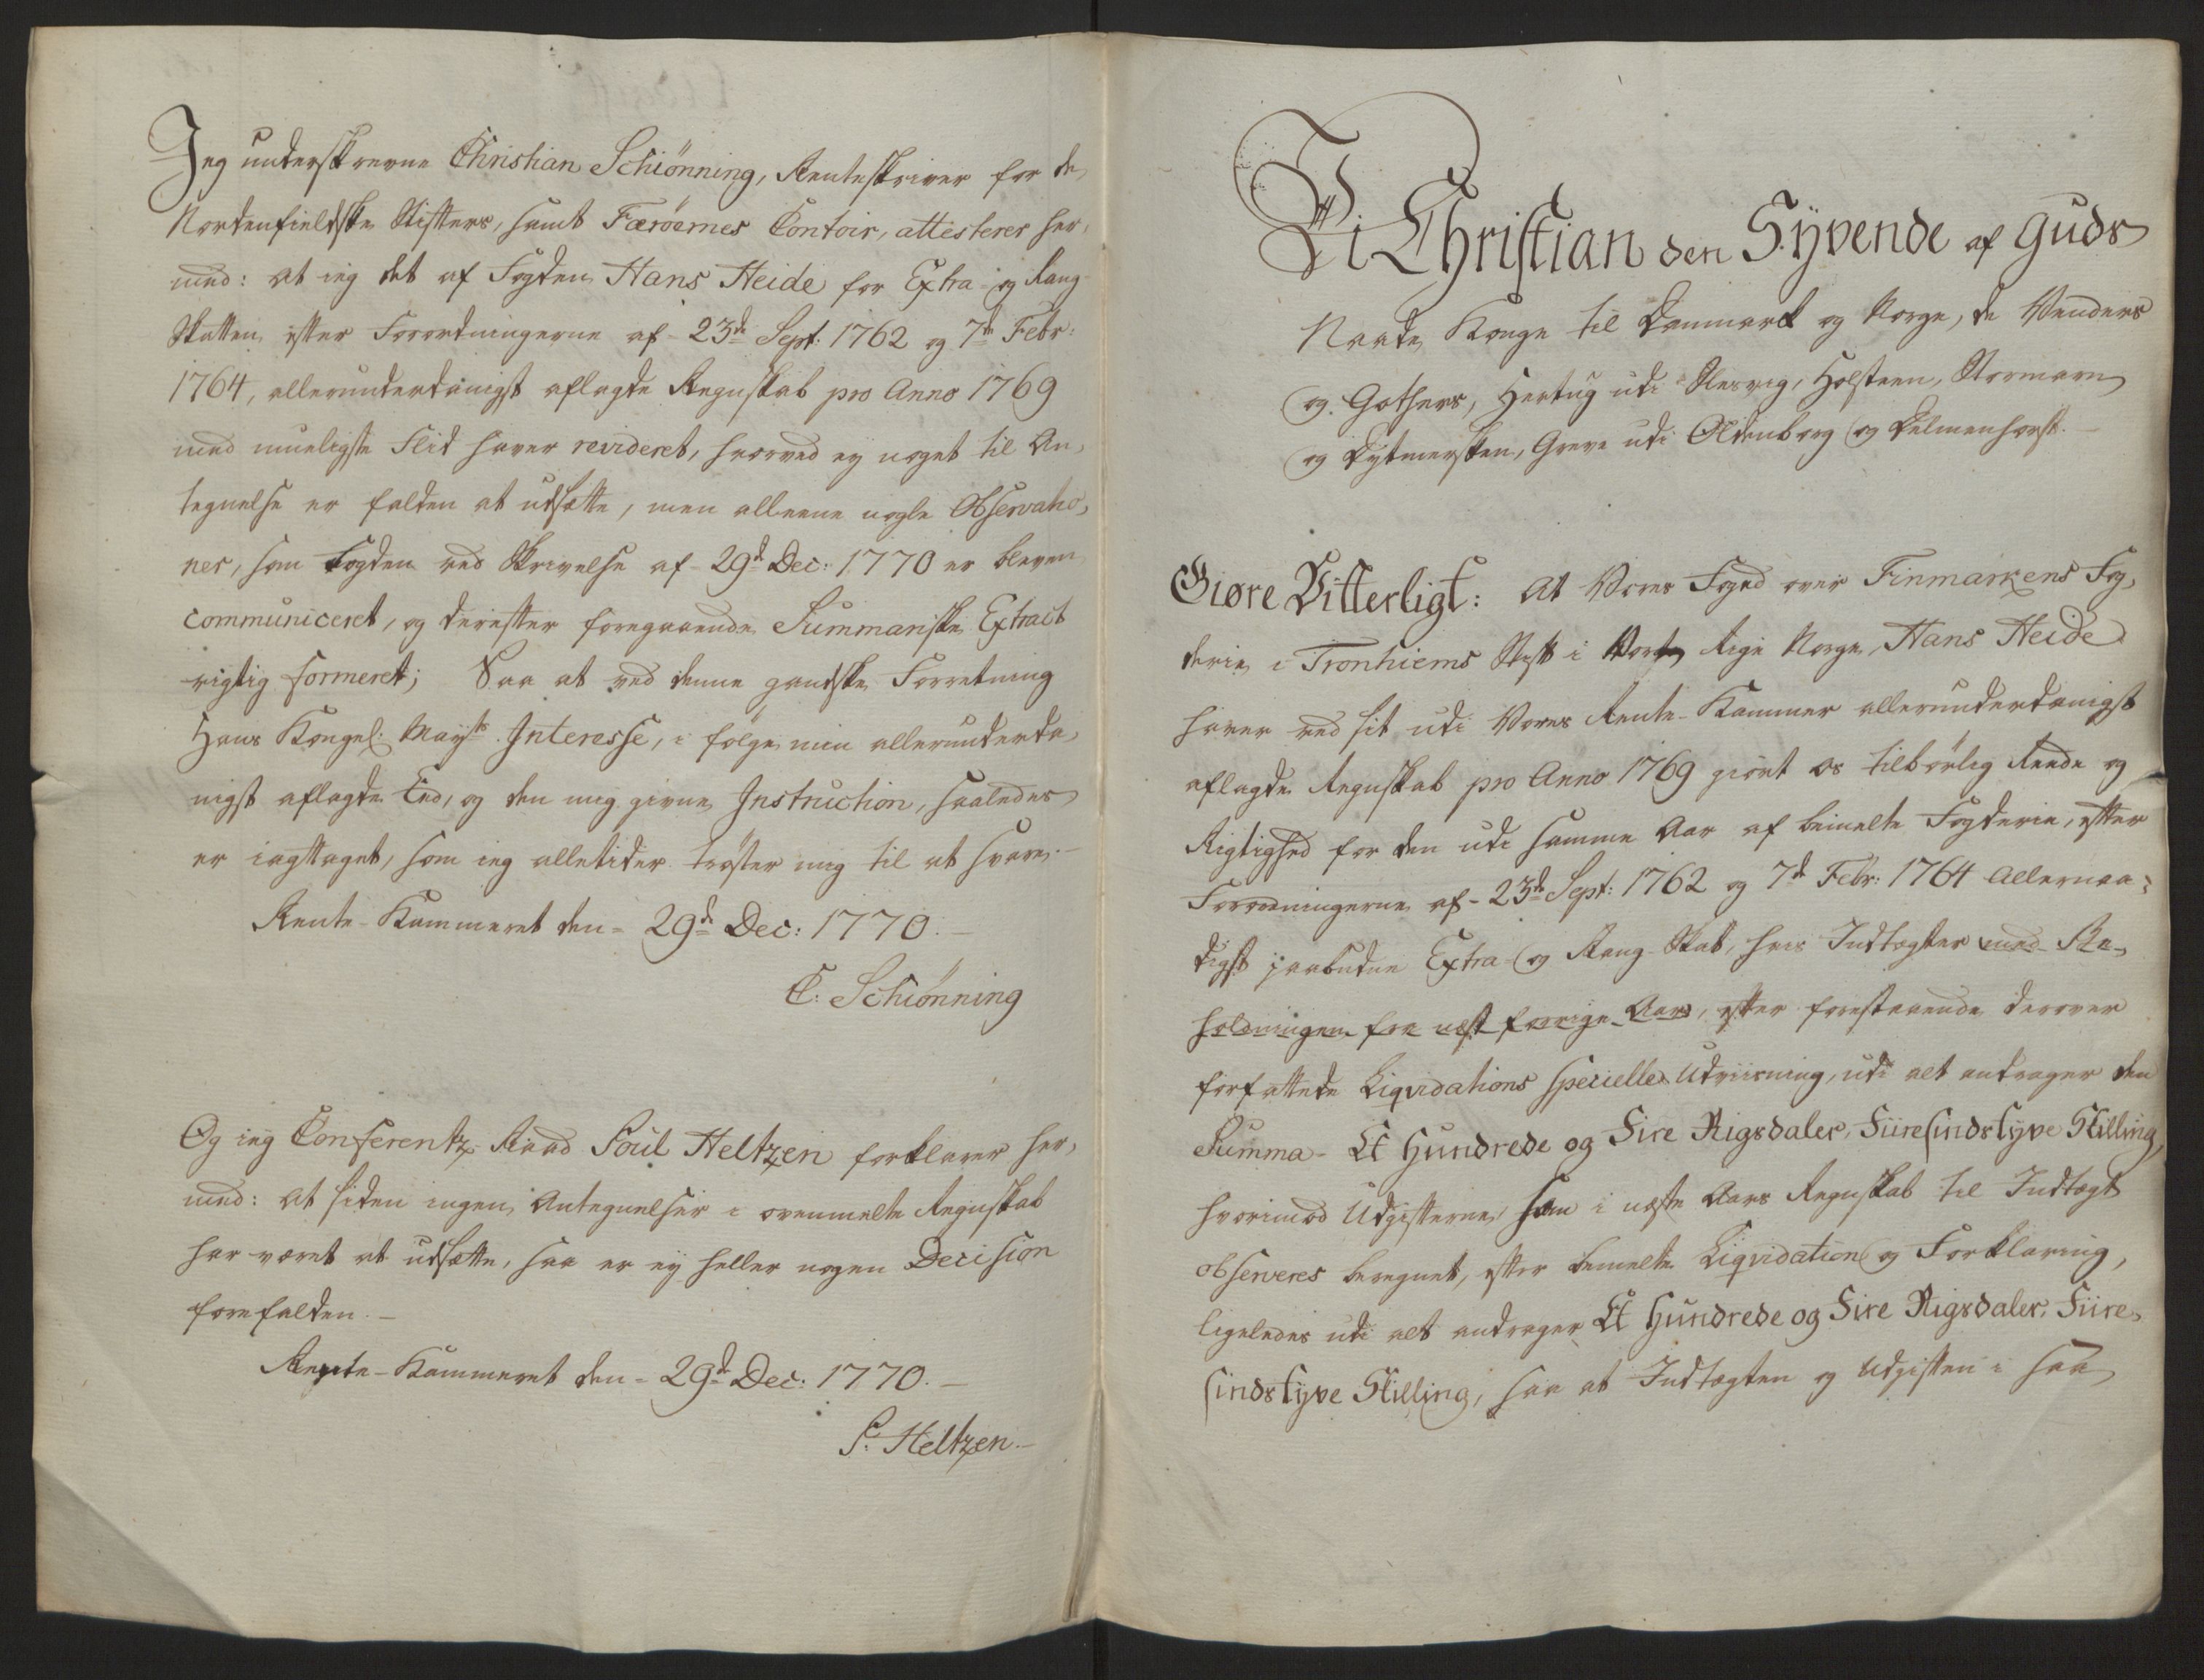 Jeg underskrevne Christian Schiönning, Renteskriver for de
Nordenfieldske Stifters, samt Færöernes Contoir, attesterer her,
med: at ieg det af Fogden Hans Heide for Extra- og Rang-
Skatten efter Forordningerne af 23de Sept. 1762 og 7de Febr:
1764, allerunderdanigst aflagde Regnskab pro Anno 1769
med mueligste Flid haver revideret, hvorved ey noget til An,
tegnelse er falden at udsætte, men alleene nogle Observatio,
ner, som Fogden ved Skrivelse af 29d Dec: 1770 er bleven
communiceret, og derefter foregaaende Summariske Extract
rigtig formeret; Saa at ved denne gandske Forretning
Hans Kongel: Mayts Interesse, i følge min allerunderda,
nigst aflagde Eed, og den mig givne Instruction, saaledes
er iagttaget, som ieg alletider trøster mig til at svare.
Rente-Kammeret den 29d Dec: 1770.
C: Schiönning
Og ieg Conferentz Raad Poul Heltzen forklarer her,
med: at siden ingen Antegnelser i ovenmelte Regnskab
har været at udsætte, saa er ey heller nogen Decision
forefalden.
Rente-Kammeret den 29d Dec: 1770.
P: Heltzen
Vi Christian den Syvende af Guds
Naade Konge til Danmark og Norge, de Venders
og Gothers, Hertug udi Slesvig, Holsteen, Stormarn
og Dytmersken, Greve udi Oldenborg og Delmenhorst.
Giøre Vitterligt: At Vores Foged over Finmarkens Fog,
derie i Tronhiems Stift i Vort Rige Norge, Hans Heide
haver ved sit udi Vores Rente-Kammer allerunderdanigst
aflagde Regnskab pro Anno 1769 giørt os tilbørlig Reede og
Rigtighed for den udi samme Aar af bemelte Fogderie, efter
Forordningerne af 23de Sept: 1762 og 7d Febr: 1764 Allernaa,
digst paabudne Extra- og Rang-Skat, hvis Indtægter med Be,
holdningen fra næst forrige Aar, efter forestaaende derover
forfattede Liqvidations specielle Udviisning, udi alt andrager den
Summa Et Hundrede og Fire Rigsdaler, Fiiresindstyve Skilling,
hvorimod Udgifterne som i næste Aars Regnskab til Indtægt
observeres beregnet, efter bemelte Liqvidation og Forklaring,
ligeledes udi alt andrager Et Hundrede og Fire Rigsdaler, Fiire,
sindstyve Skilling, saa at Indtægten og Udgiften i saa